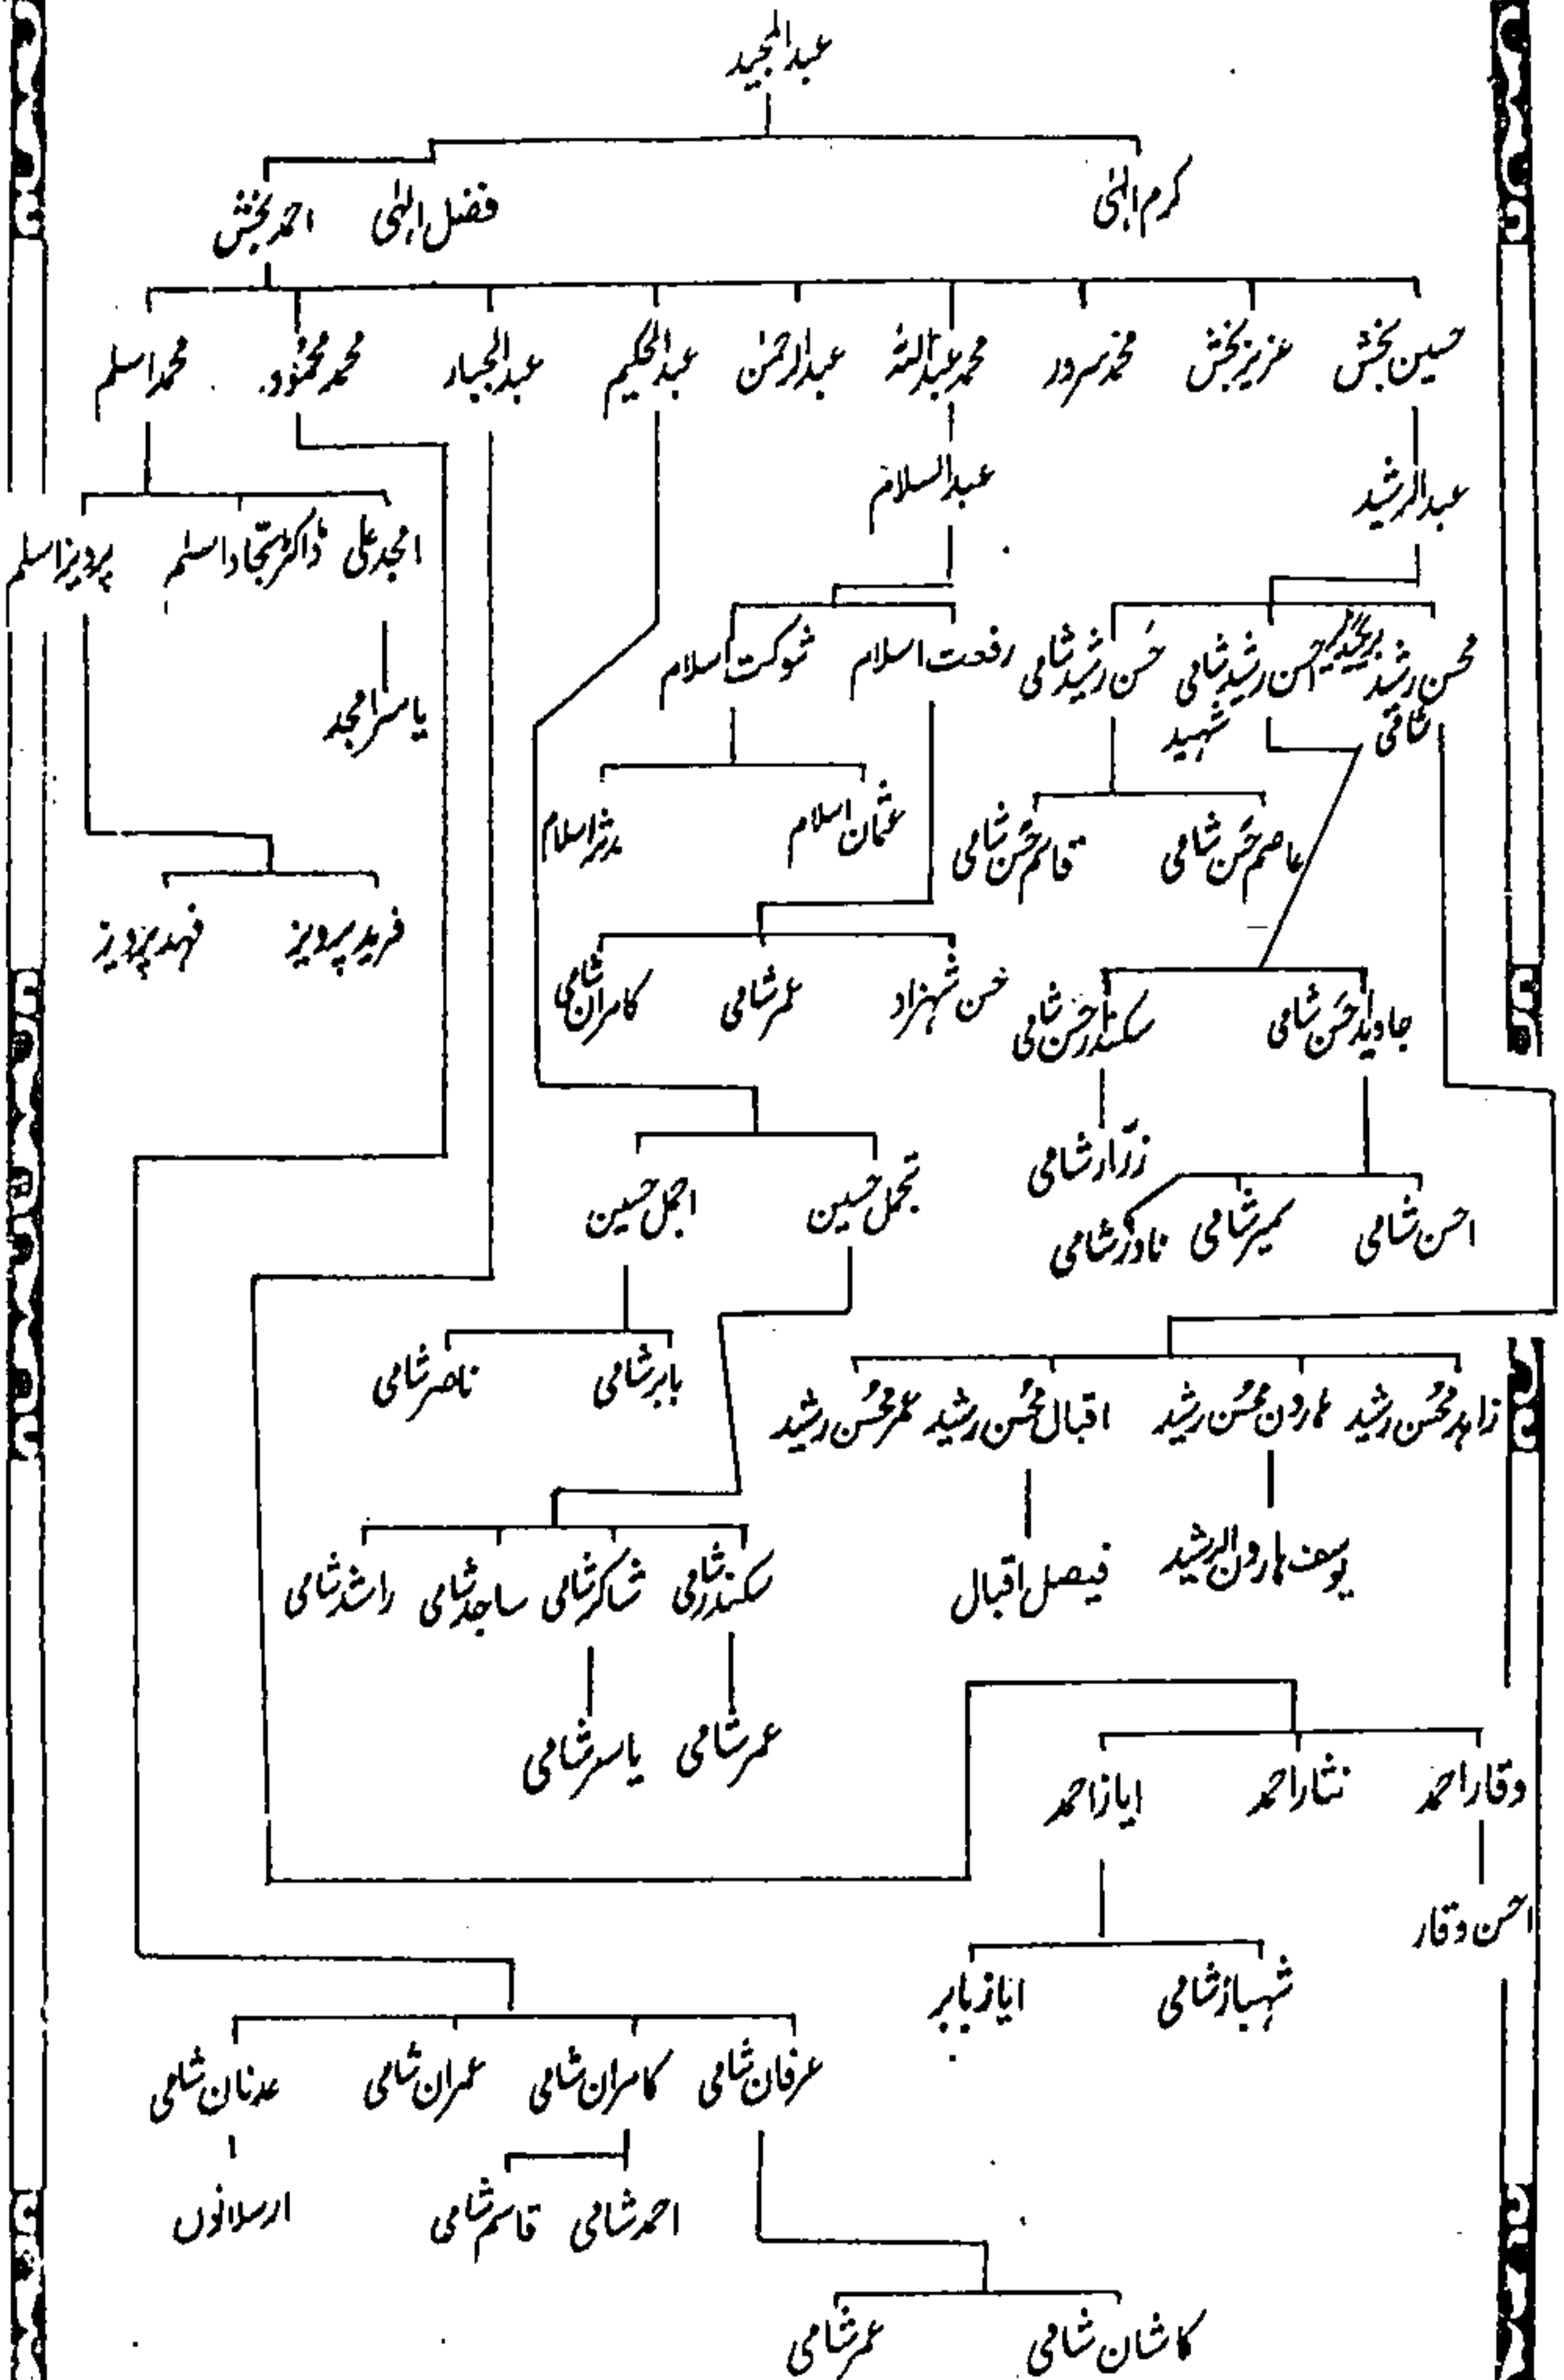 عبدالمجید
کرم الٰہی فضل الٰہی احمد بخش
حسین بخش عزیز بخش محمد سرور محمد عبداللہ عبدالرحمٰن عبدالحکیم عبدالجبار محمد محمود محمد اسلم
عبدالرشید عبدالسلام
امجد علی ڈاکٹر سجاد اسلم پرویز اسلم
محسن رشید شامی بریگیڈیر احسن رشید شامی شہید حسن رشید شامی رفعت اسلام شوکت اسلام
یاسر امجد
عاصم حسن شامی قاسم حسن شامی عثمان اسلام مدثر اسلام
فرید پرویز فہد پرویز
جاوید احسن شامی سکندر احسن شامی حسن شہزاد عمر شامی کامران شامی
زرّار شامی
احسن شامی سمیر شامی نادر شامی تجمل حسین اجمل حسین
بابر شامی ناصر شامی
زاہد محسن رشید ہارون محسن رشید اقبال محسن رشید عمر محسن رشید
یوسف ہارون الرشید فیصل اقبال
سکندر شامی شاکر شامی ساجد شامی راشد شامی
عمر شامی یاسر شامی
وقار احمد نثار احمد ایاز احمد
احسن وقار
شہباز شامی ایاز بابر
عرفان شامی کامران شامی عمران شامی عدنان شامی
احمد شامی قاسم شامی ارسلانوں
کاشان شامی عمر شامی